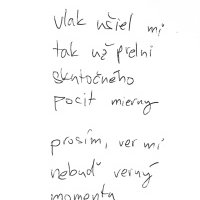 vlak ušiel mi
tak už prelni
skutočného
pocit mierny
prosím, ver mi
nebuď verný
momentu